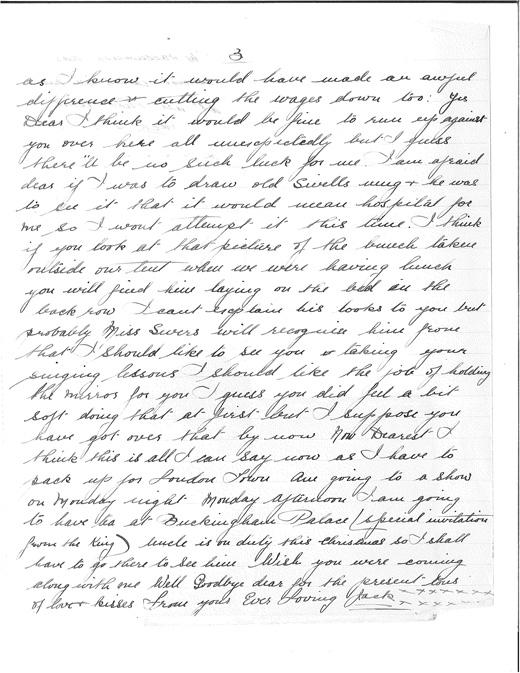 3
as I know it would have made an awful
difference + cutting the wages down too: Yes
Dear I think it would be fine to run up against
you over here all unexpectedly but I guess
there'll be no such luck for me. I am afraid
dear if I was to draw old Sivells mug + he was
to see it that it would mean hospital for
me so I wont attempt it this time. I think
if you look at that picture of the bunch taken
outside our tent when we were having lunch
you will find him laying on the bed in the
back row I cant explain his looks to you but
probably Miss Sivers will recognise him from
that I should like to see you + taking your
singing lessons I should like the job of holding
the mirror for you I guess you did feel a bit
soft doing that at first but I suppose you
have got over that by now Now Dearest I
think this is all I can say now as I have to
pack up for London Town am going to a show
on Monday night Monday afternoon I am going
to have tea at Buckingham Palace (special invitation
from the King) Uncle is on duty this Christmas so I shall
have to go there to see him Wish you were coming
along with me Well Goodbye dear for the present tons
of love + kisses from yours Ever Loving Jack xxxxxxx